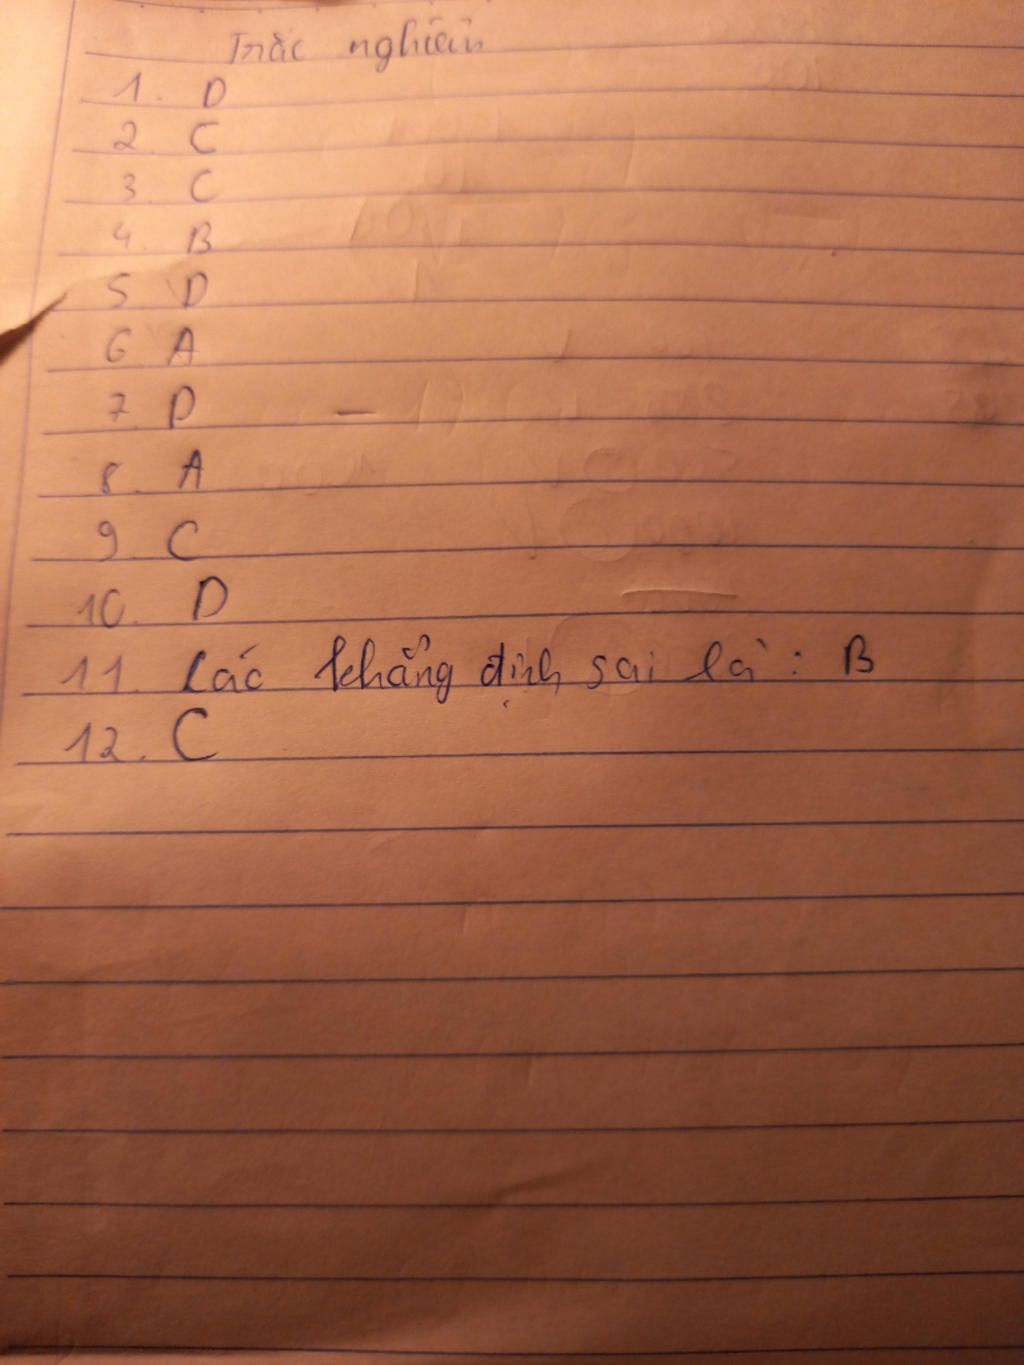 Trắc nghiệm
1. D
2 C
3. C
4. B
5 D
6 A
7. D
8. A
9. C
10. D
11. Các khẳng định sai là : B
12. C